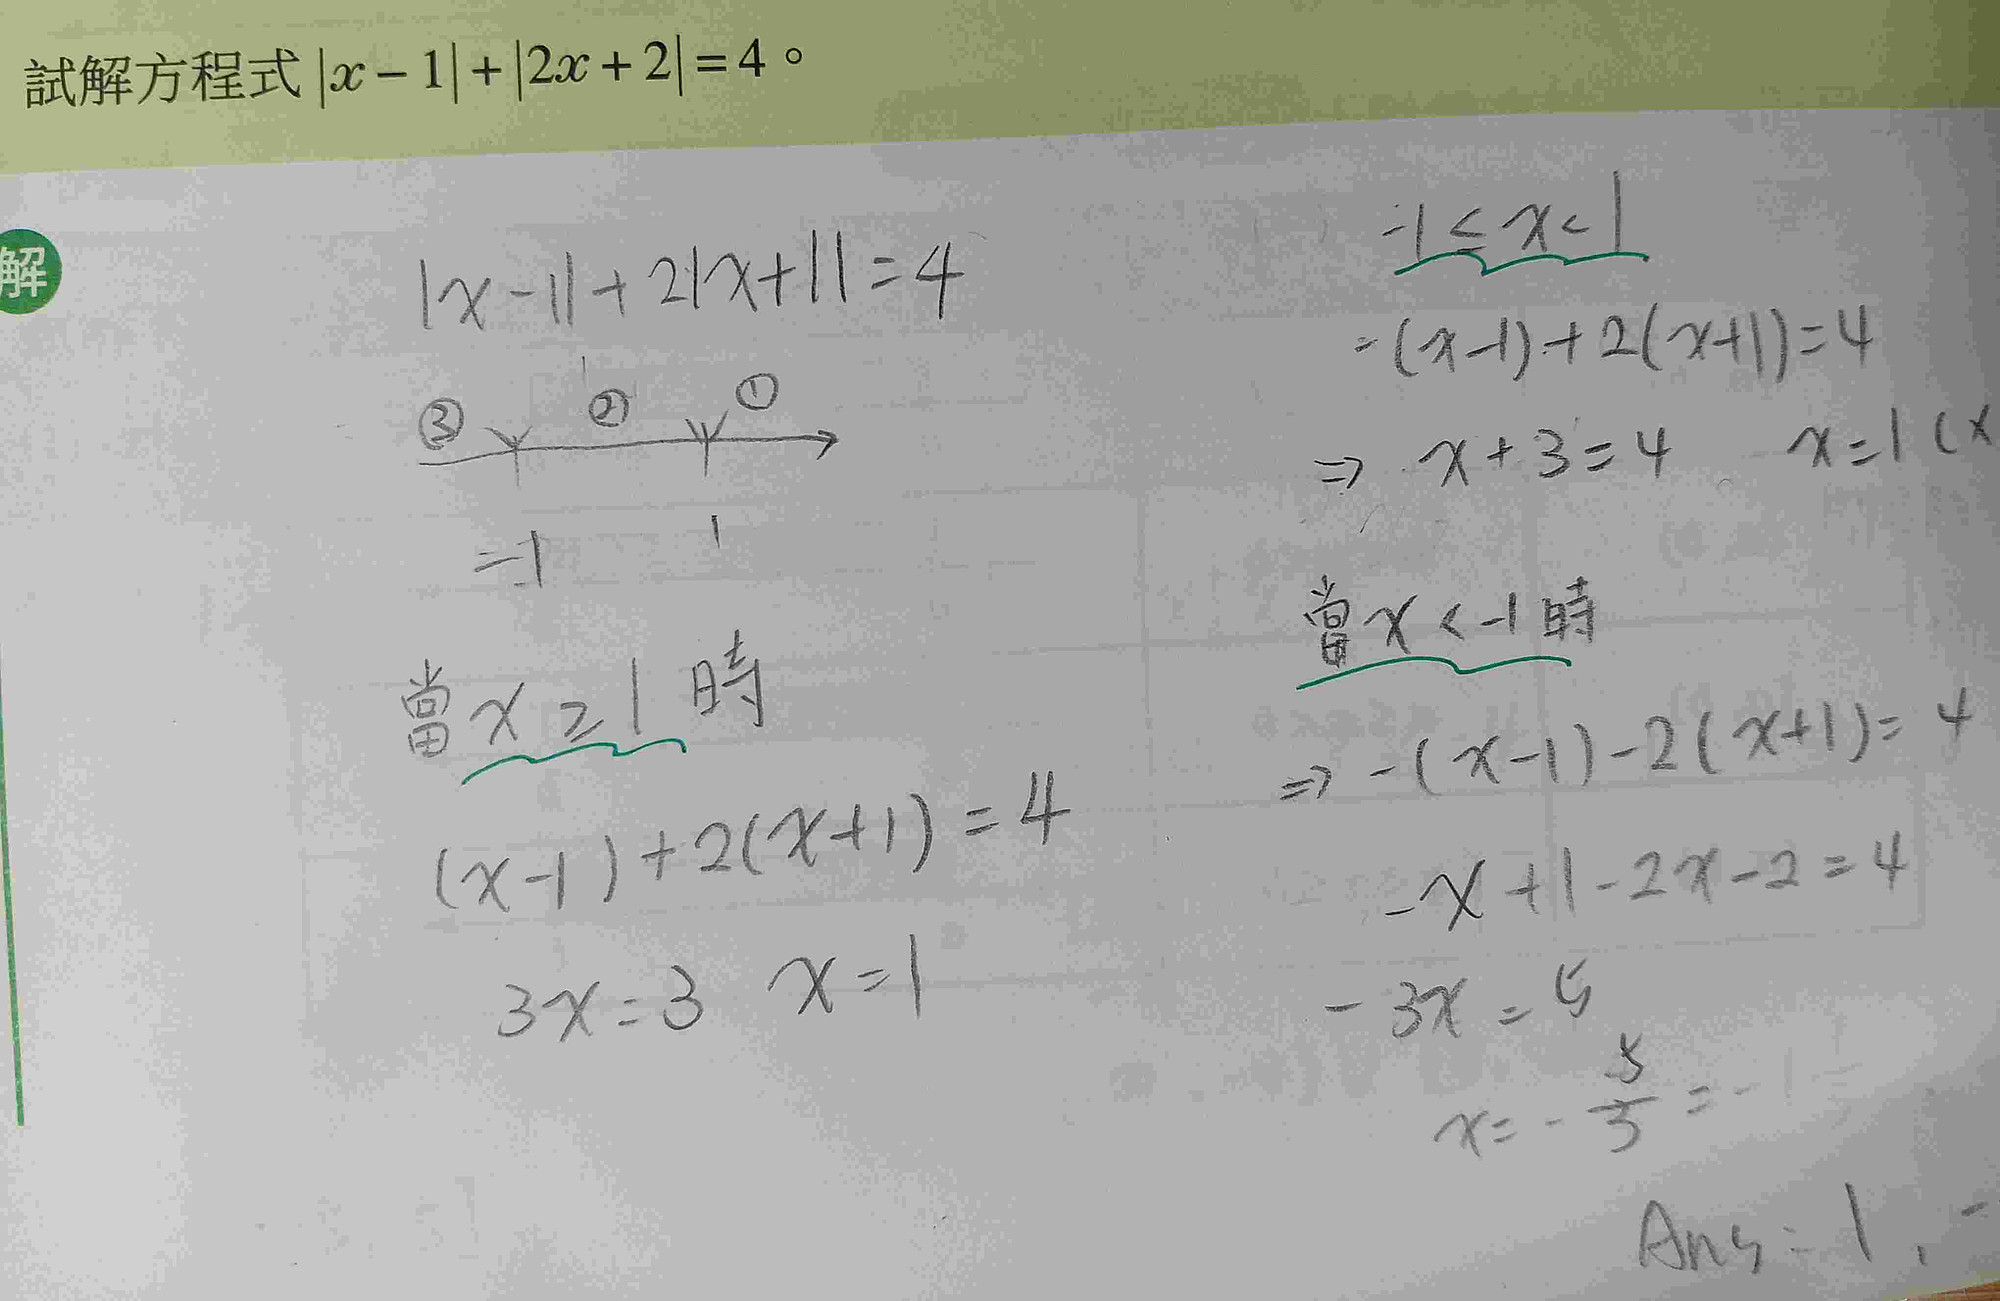 試解方程式|x－1|+|2x+2|=4。
解
|x-1|+2|x+1|=4
③ ② ①
-1 1
當x≥1時
(x-1)+2(x+1)=4
3x=3 x=1
-1≤x<1
-(x-1)+2(x+1)=4
⇒ x+3=4 x=1(x
當x<-1時
⇒ -(x-1)-2(x+1)=4
-x+1-2x-2=4
-3x=5
x=-5/3=-1
Ans=1,-